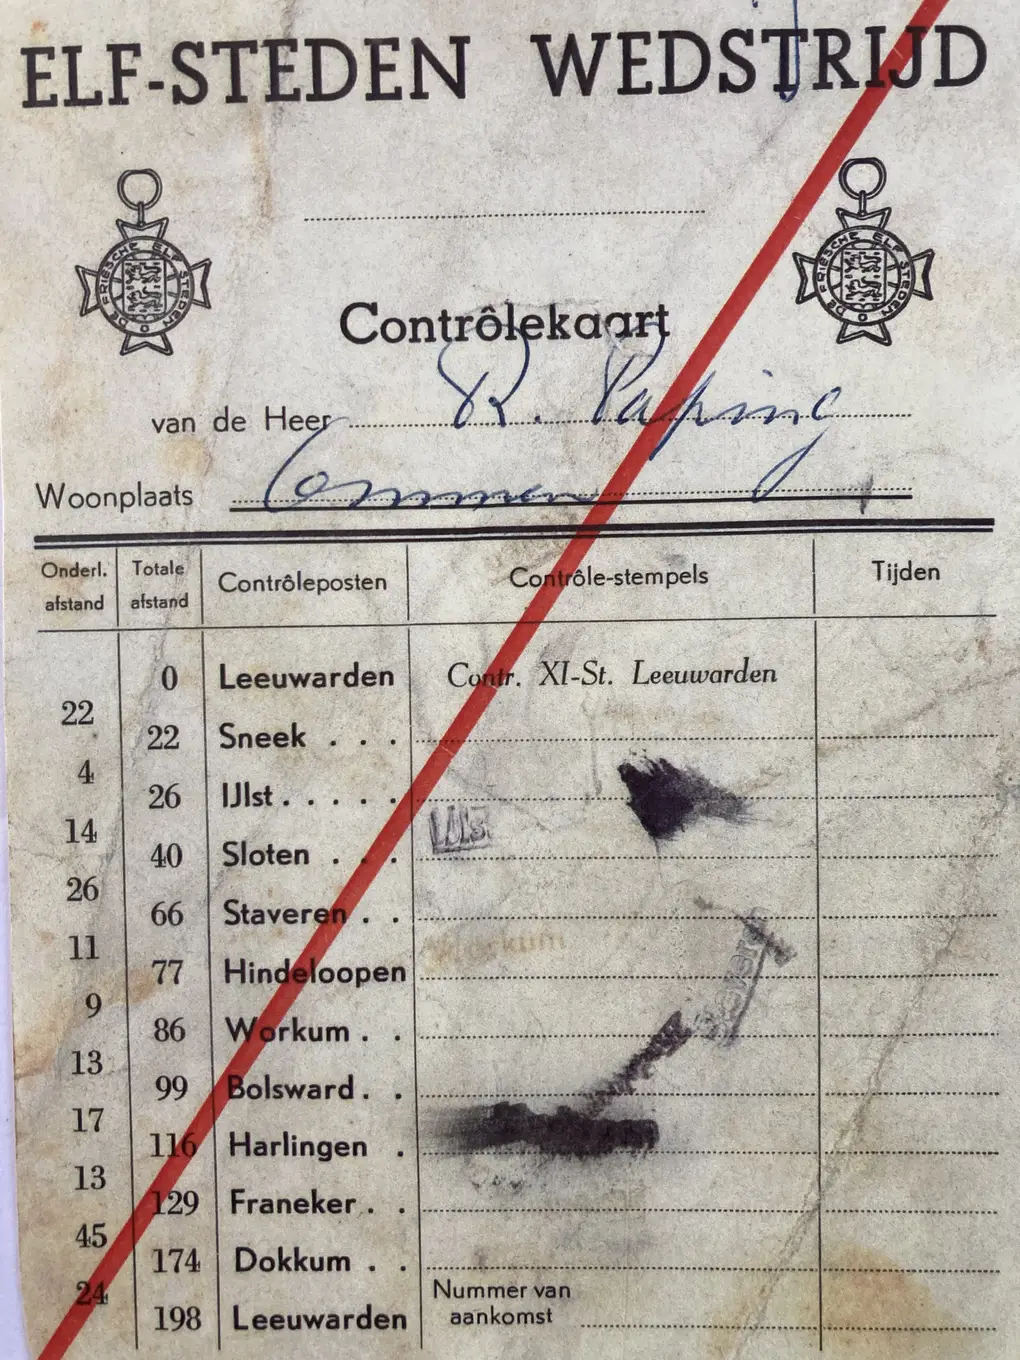 ELF-STEDEN WEDSTRIJD
DE FRIESCHE ELF STEDEN
DE FRIESCHE ELF STEDEN
Contrôlekaart
van de Heer R. Paping
Woonplaats Ommen
Onderl. afstand Totale afstand Contrôleposten Contrôle-stempels Tijden
0 Leeuwarden Contr. XI-St. Leeuwarden
22
22 Sneek . . .
4
26 IJlst . . . . .
14
40 Sloten . . .
26
66 Staveren . .
11
77 Hindeloopen
9
86 Workum . .
13
99 Bolsward . .
17
116 Harlingen .
13
129 Franeker . .
45
174 Dokkum . .
24
198 Leeuwarden Nummer van aankomst